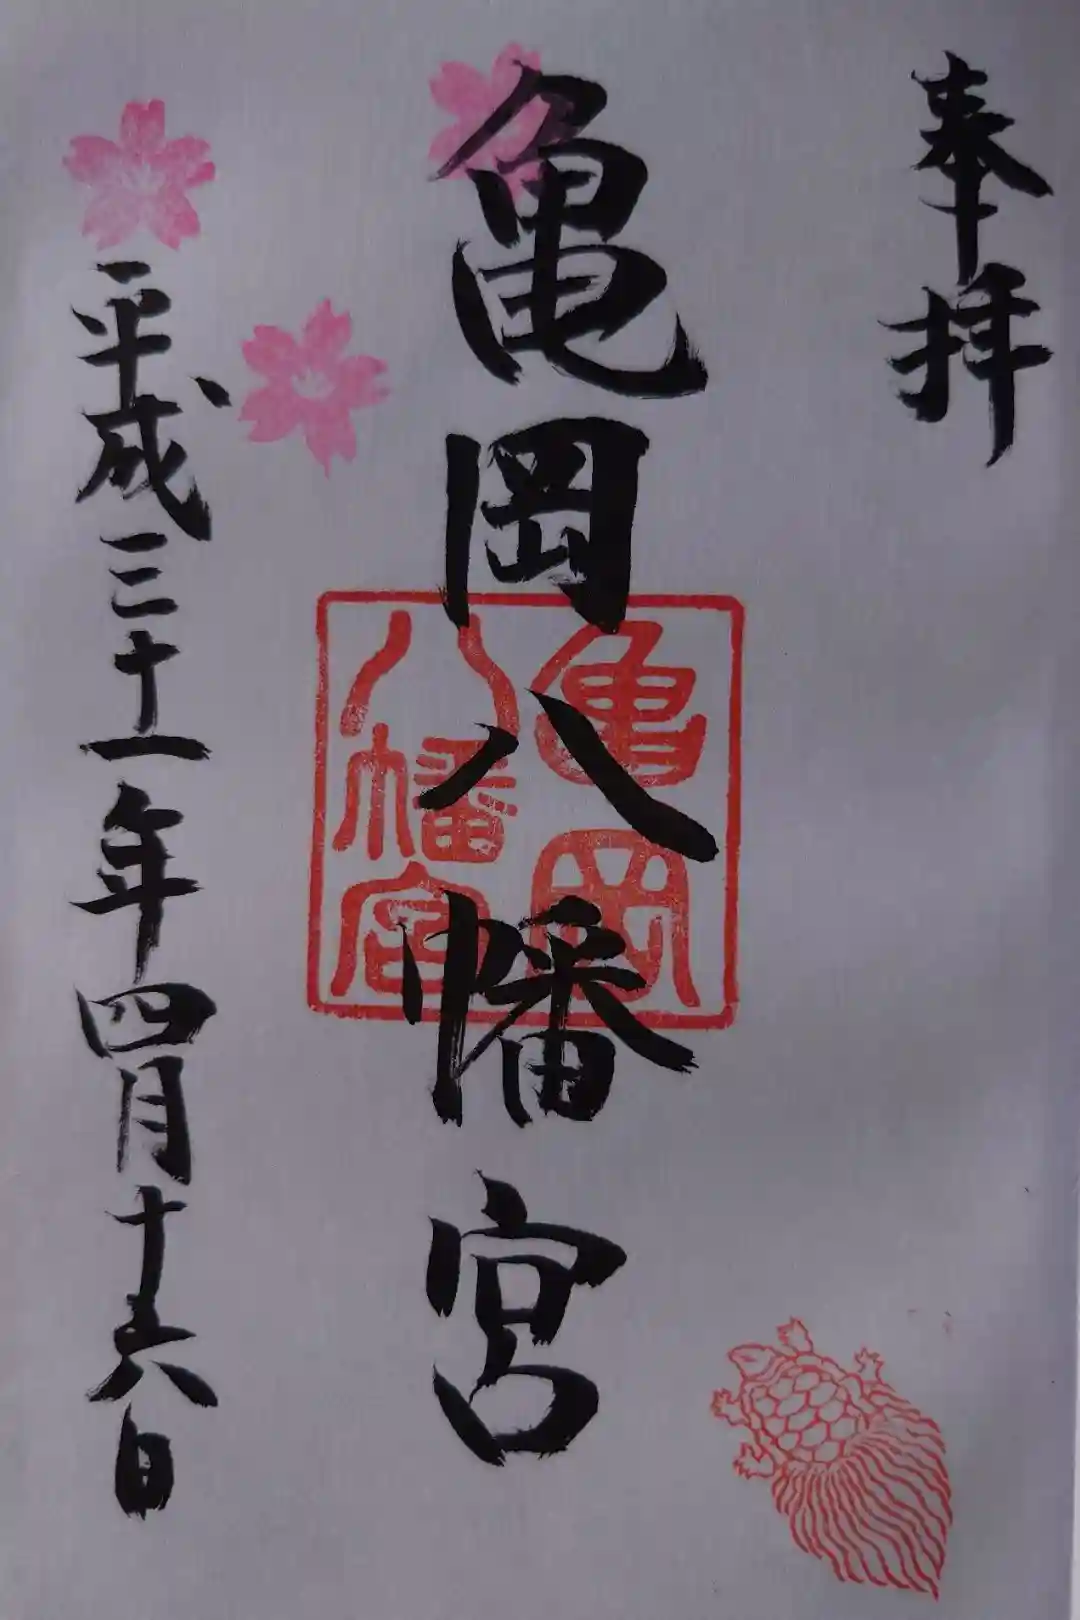 奉拝
亀岡八幡宮
亀岡
八幡宮
平成三十一年四月十六日